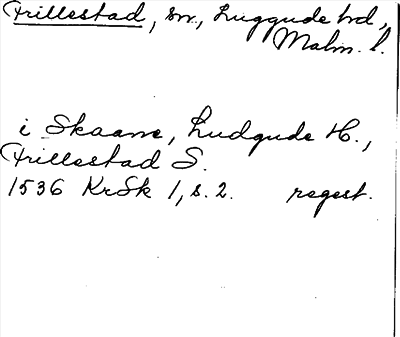 Frillestad, sn., Luggude hd,
Malm. l.
i Skaane, Ludgude H.,
Frillestad S.
1536 KrSk 1, s. 2. regest.